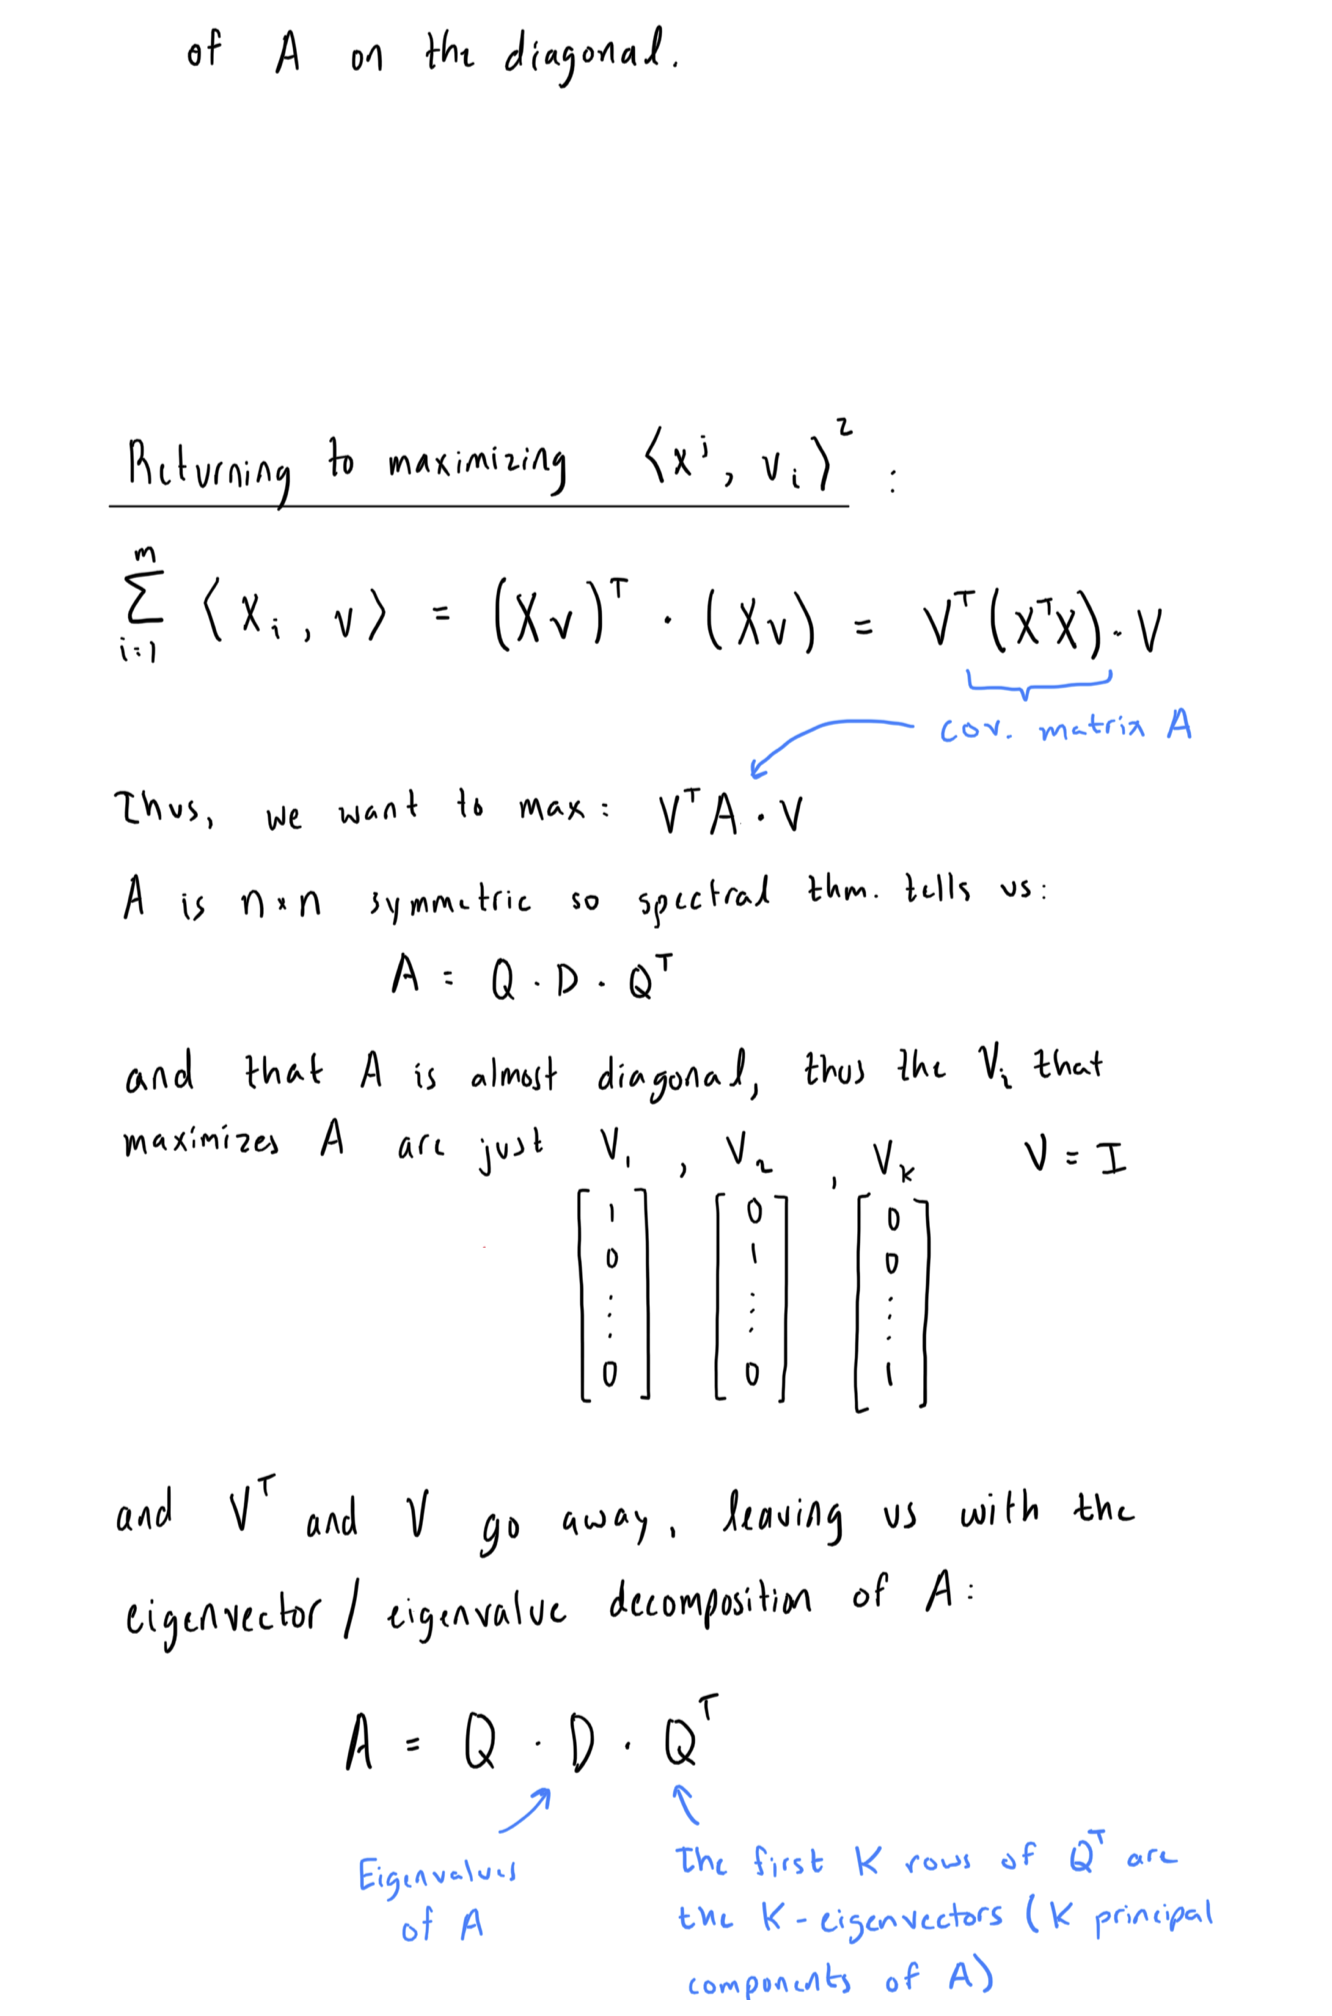 of A on the diagonal.
Returning to maximizing ⟨x^j, v_i⟩^2 :
∑_{i=1}^{m} ⟨x_i, v⟩ = (Xv)^T · (Xv) = V^T(X^TX)·V
cov. matrix A
Thus, we want to max: V^T A · V
A is n×n symmetric so spectral thm. tells us:
A = Q · D · Q^T
and that A is almost diagonal, thus the V_i that
maximizes A are just V_1 , V_2 , V_k V = I
[1 0 ⋮ 0] [0 1 ⋮ 0] [0 0 ⋮ 1]
and V^T and V go away, leaving us with the
eigenvector / eigenvalue decomposition of A:
A = Q · D · Q^T
Eigenvalues
of A
The first K rows of Q^T are
the K-eigenvectors (K principal
components of A)